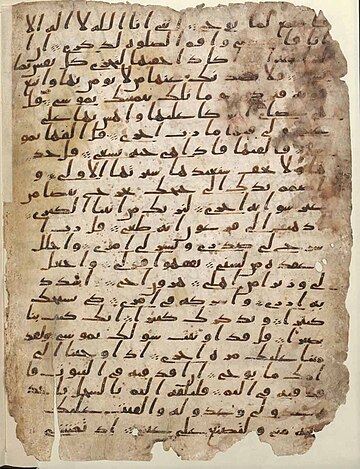 لما يوحى انني انا الله لا اله الا
انا فا واقم الصلوة لذكري ان
اكاد اخفيها لتجزى كل نفس بما
فلا يصدنك عنها من لا يومن بها واتبع
هويه فتردى وما تلك بيمينك يموسى قل
هي عصاي اتوكوا عليها واهش بها على
غنمي ولي فيها مارب اخرى قل القها يمو
سى فالقها فاذا هي حية تسعى قل خذ
ها ولا تخف سنعيدها سيرتها الاولى و
اضمم يدك الى جناحك تخرج بيضا من
غير سو اية اخرى لنريك من ايتنا الكبرى
اذهب الى فرعون انه طغى قل رب ا
شرح لي صدري ويسر لي امري واحلل
عقدة من لسني يفقهوا قولي واجعل
لي وزيرا من اهلي هرون اخي اشدد
به ازري واشركه في امري كي نسبحك
كثيرا ونذكرك كثيرا انك كنت بنا
بصيرا قل قد اوتيت سولك يموسى ولقد
مننا عليك مرة اخرى اذ اوحينا الى
امك ما يوحى ان اقذفيه في التبوت فا
قذفيه في اليم فليلقه اليم بالسحل ياخذه
عدو لي وعدو له والقيت عليك
محبة مني ولتصنع على عيني اذ تمشي